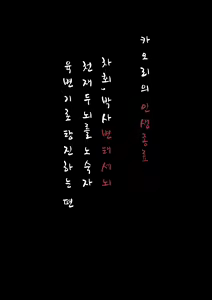 카오리의 인생종료
차회, 박사 변태세뇌
천재두뇌를 노숙자
육변기로 탕진하는 편